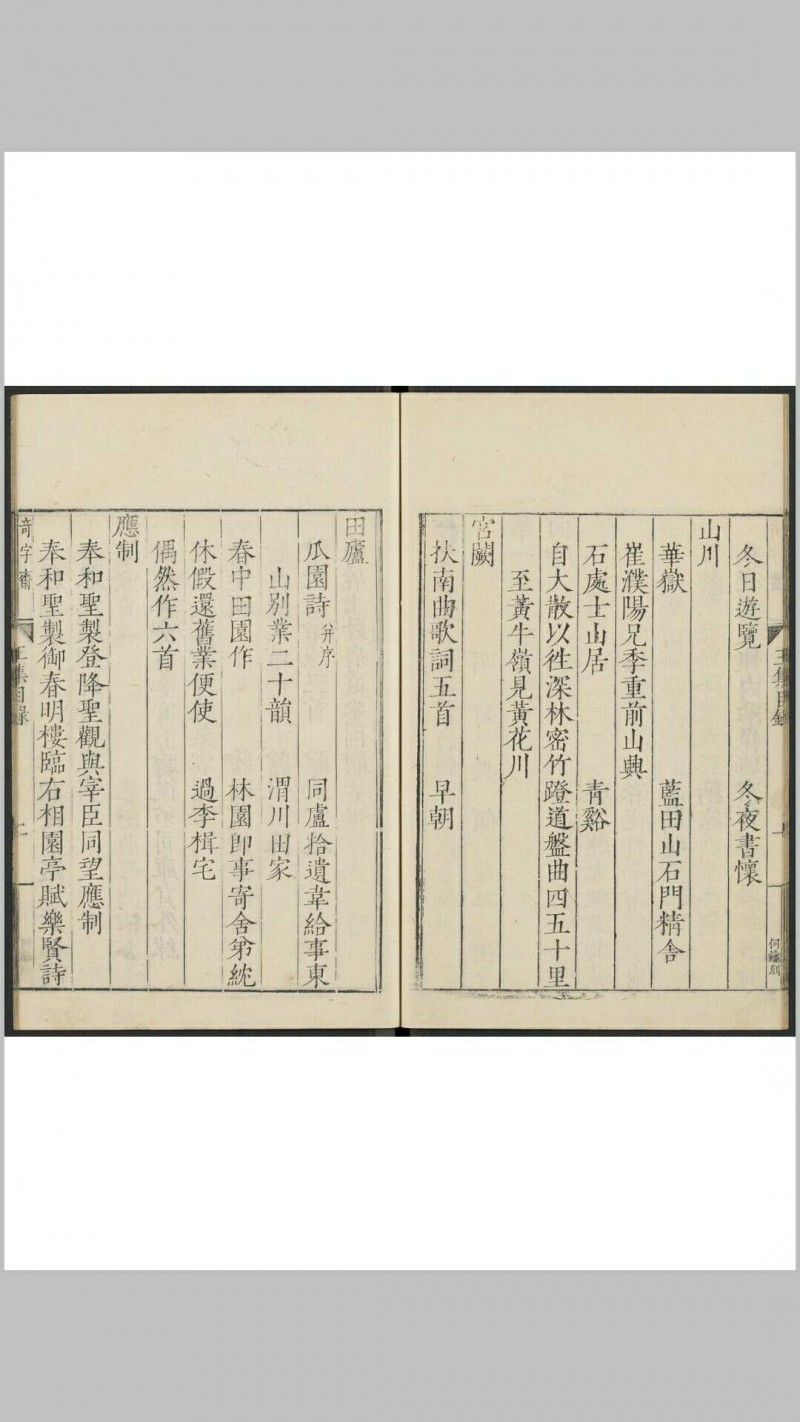 冬日遊覽　冬夜書懷
山川
華嶽　藍田山石門精舍
崔濮陽兄季重前山興
石處士山居　青谿
自大散以徃深林密竹蹬道盤曲四五十里
至黃牛嶺見黃花川
宮闕
扶南曲歌詞五首　早朝
田廬
瓜園詩并序　同盧拾遺韋給事東
山別業二十韻　渭川田家
春中田園作　林園卽事寄舍弟紞
休假還舊業便使　過李楫宅
偶然作六首
應制
奉和聖製登降聖觀與宰臣同望應制
奉和聖製御春明樓臨右相園亭賦樂賢詩
奇字齋　王集目錄